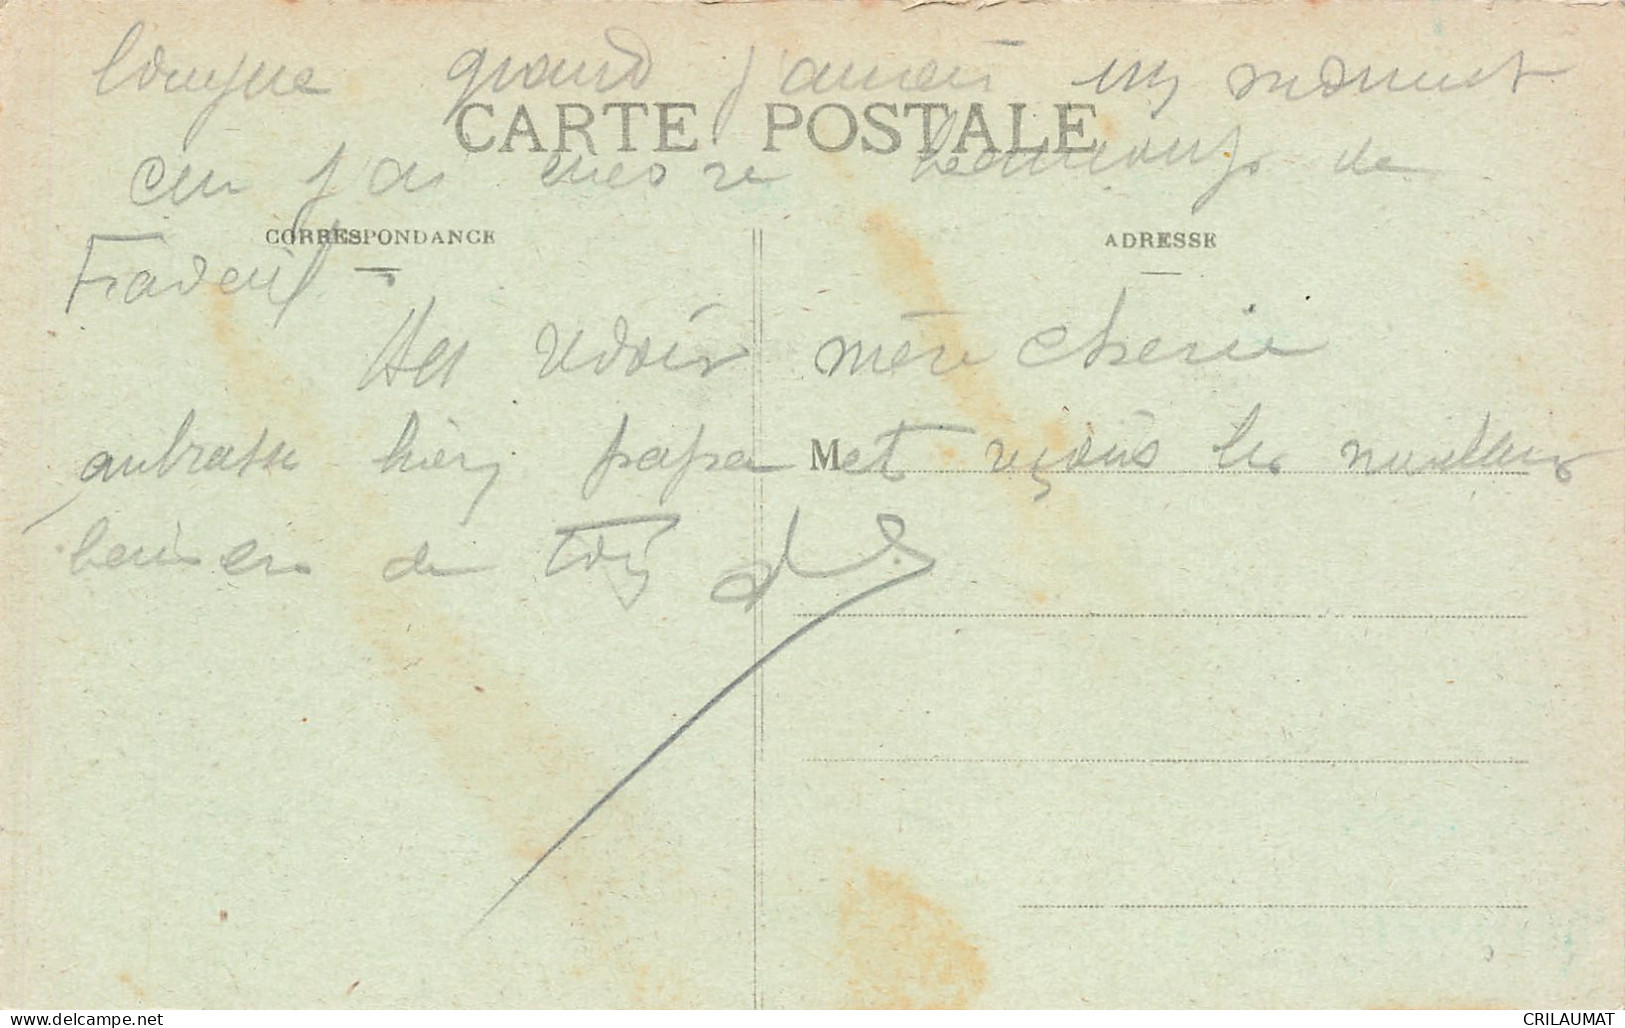 longue quand j'aurai un moment
CARTE POSTALE
car j'ai encore beaucoup de
CORRESPONDANCE
ADRESSE
Travail
Au revoir mère cherie
embrasse bien papa M et reçois les meilleurs
baisers de ton
CRILAUMAT